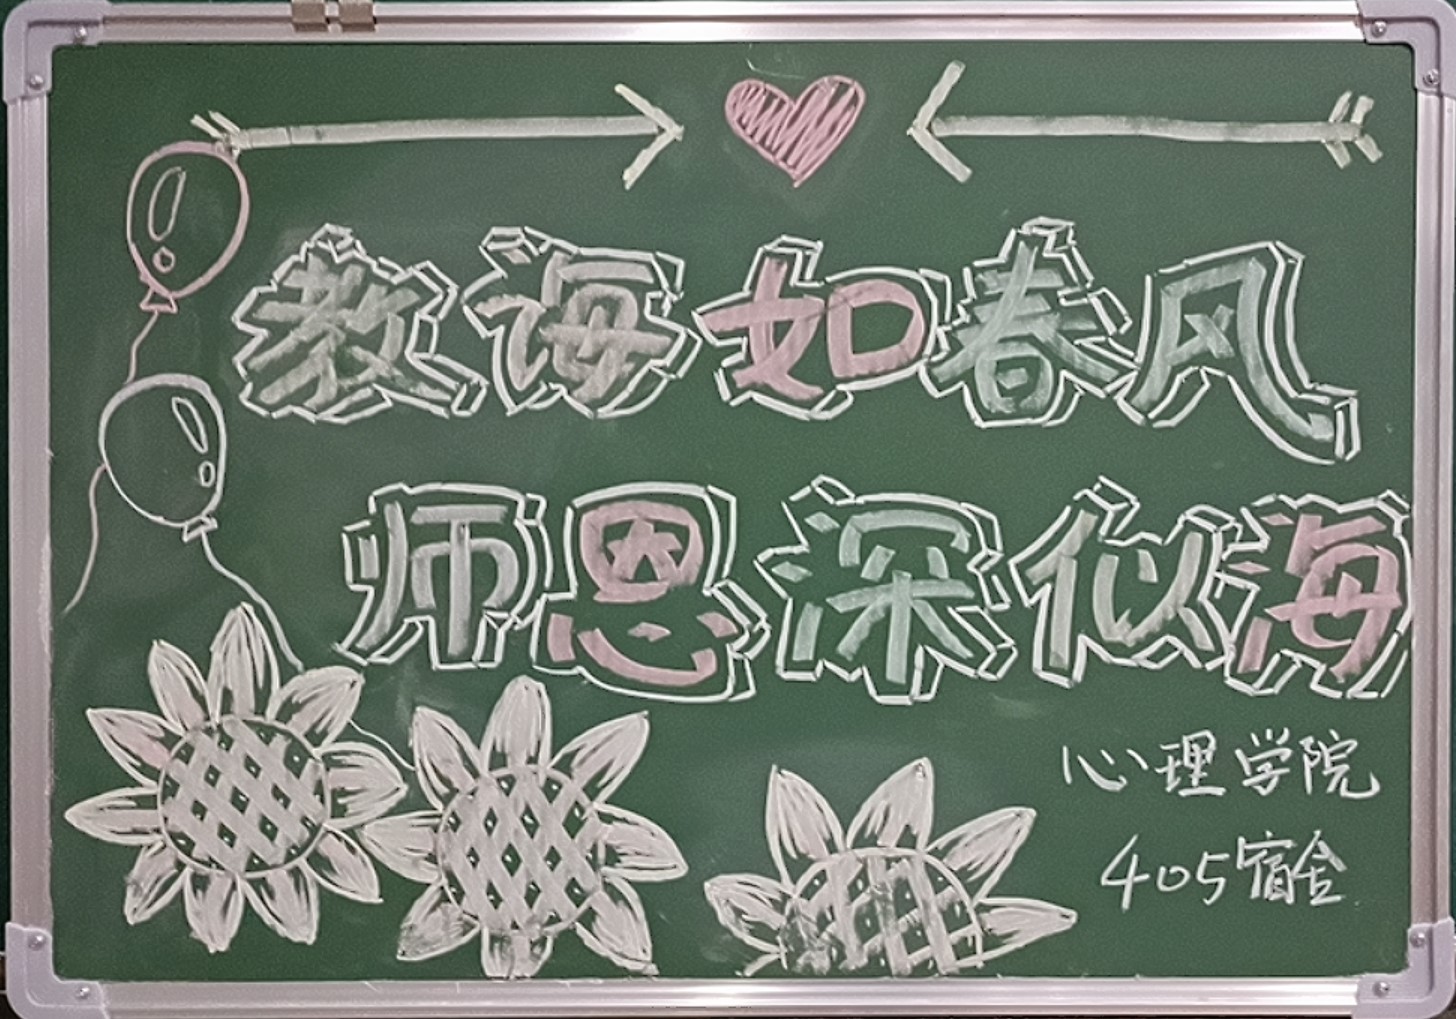 教诲如春风
师恩深似海
心理学院
405宿舍